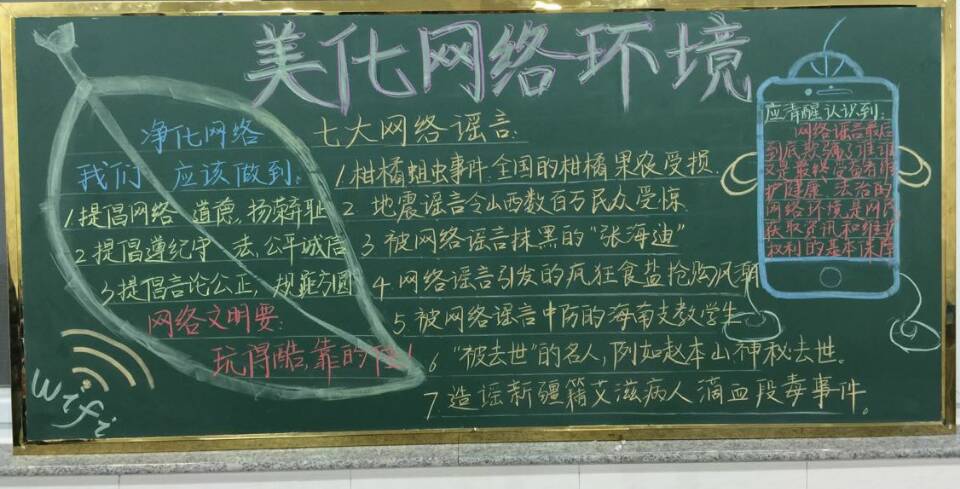 美化网络环境
净化网络
我们 应该做到:
1.提倡网络 道德,扬荣弃耻
2 提倡遵纪守 法,公平诚信
3.提倡言论公正, 规距方圆
网络文明要:
玩得酷,靠的住!
wifi
七大网络谣言:
1.柑橘蛆虫事件.全国的柑橘果农受损.
2 地震谣言令山西数百万民众受惊
3 被网络谣言抹黑的“张海迪”
4 网络谣言引发的疯狂食盐抢购风潮
5.被网络谣言中伤的海南支教学生
6 “被去世”的名人,例如赵本山神秘去世。
7 造谣新疆籍艾滋病人滴血段毒事件。
应清醒认识到:
网络谣言最后
到底欺骗了谁?谁
又是最终受害者?维
护健康、法治的
网络环境是网民
获取资讯和维护
权利的基本保障